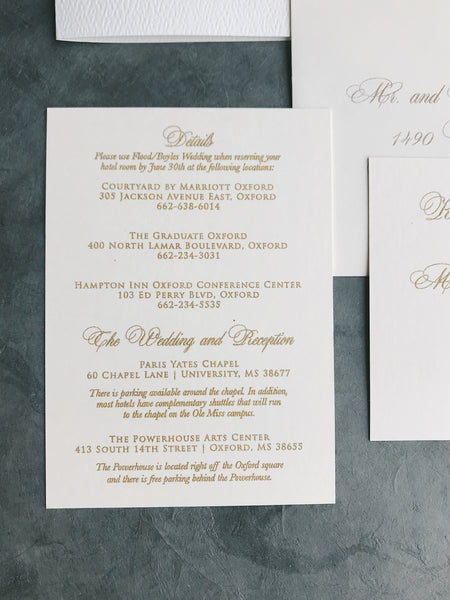 Details
Please use Flood/Boyles Wedding when reserving your
hotel room by June 30th at the following locations:
Courtyard by Marriott Oxford
305 Jackson Avenue East, Oxford
662-638-6014
The Graduate Oxford
400 North Lamar Boulevard, Oxford
662-234-3031
Hampton Inn Oxford Conference Center
103 Ed Perry Blvd, Oxford
662-234-5535
The Wedding and Reception
Paris Yates Chapel
60 Chapel Lane | University, MS 38677
There is parking available around the chapel. In addition,
most hotels have complementary shuttles that will run
to the chapel on the Ole Miss campus.
The Powerhouse Arts Center
413 South 14th Street | Oxford, MS 38655
The Powerhouse is located right off the Oxford square
and there is free parking behind the Powerhouse.
Mr. and
1490
M